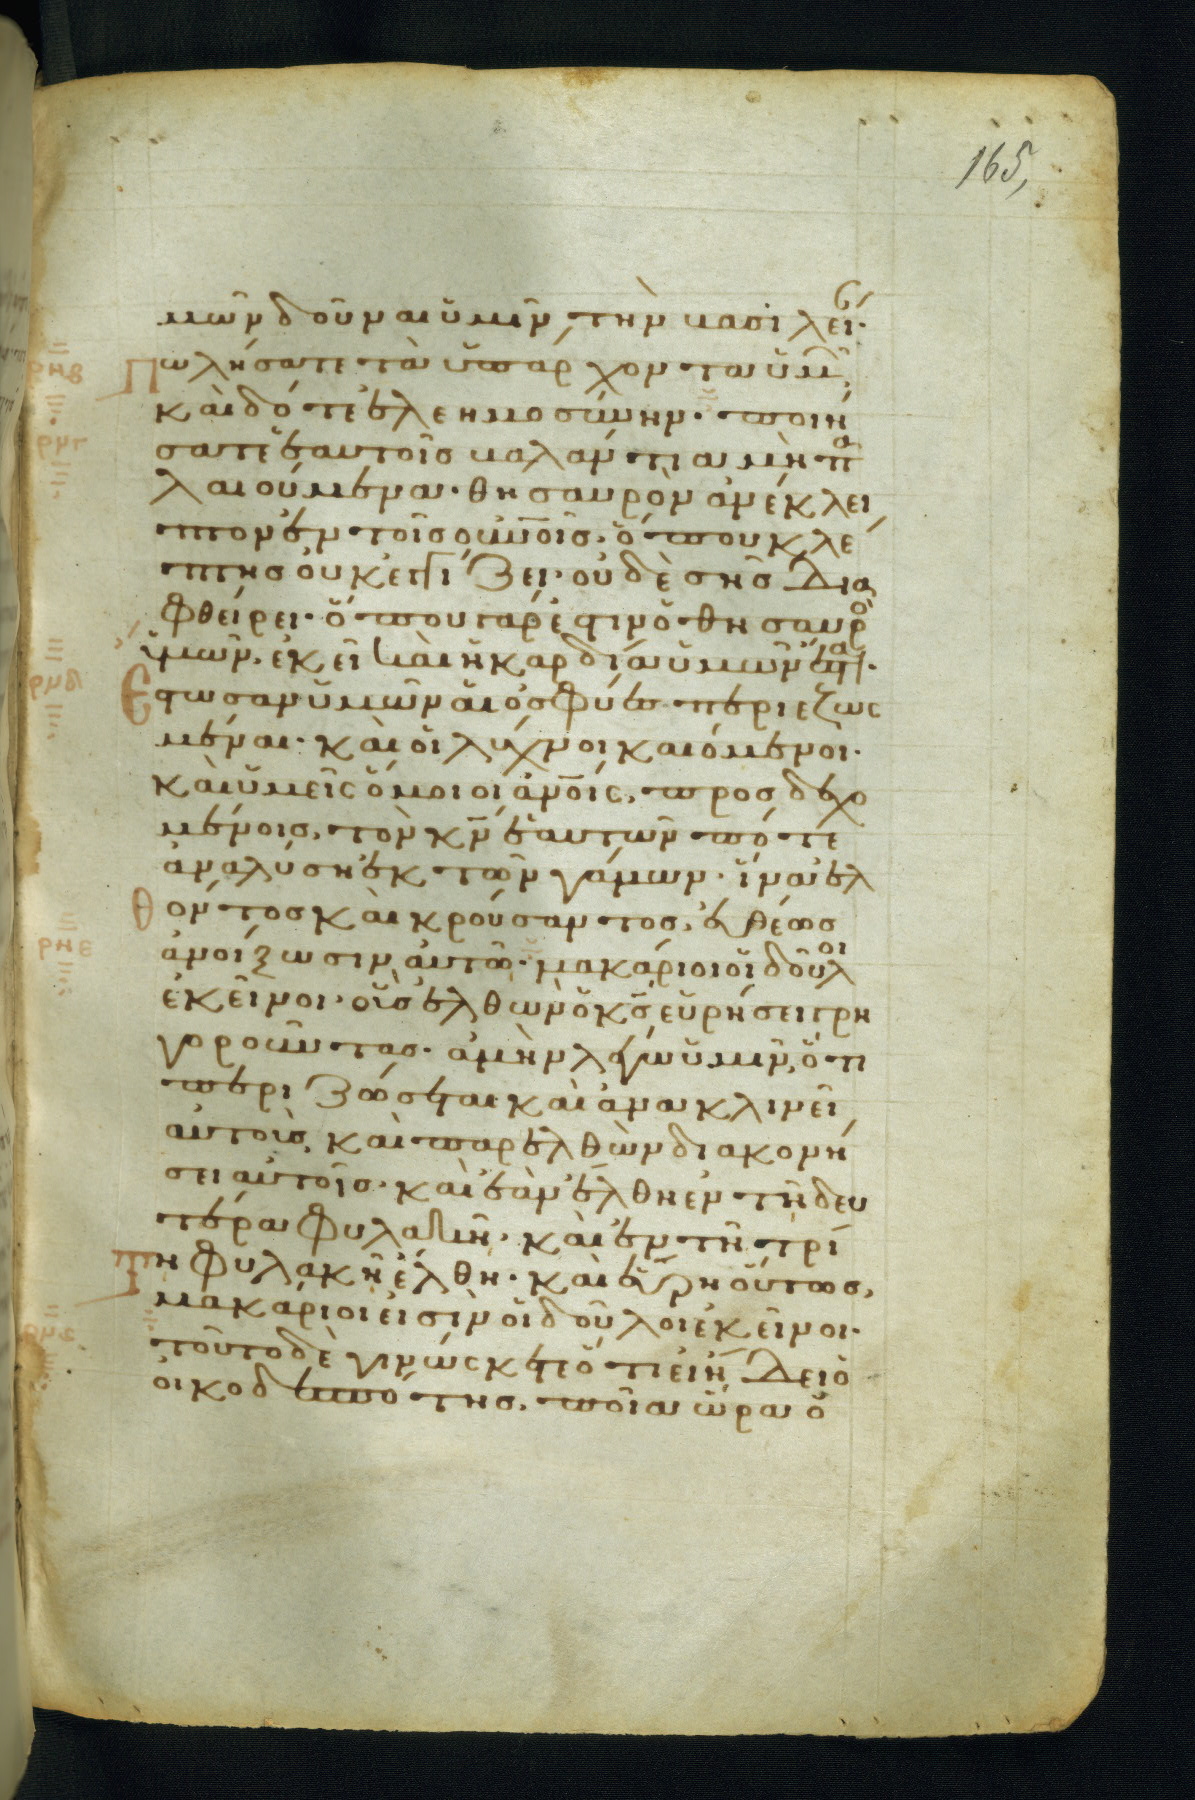 165,
μῶν δοῦναι ὑμῖν, τὴν βασιλεί·
Πωλήσατε τὰ ὑπάρχοντα ὑμῶ,
καὶ δότε ἐλεημοσύνην· ποιή
σατε ἑαυτοῖς βαλάντια μὴ πα
λαιούμενα· θησαυρὸν ἀνέκλει
πτον ἐν τοῖς οὐνοῖς· ὅπου κλέ
πτης οὐκ ἐγγίζει· οὐδὲ σὴς δια
φθείρει· ὅπου γάρ ἐστιν ὁ θησαυρὸ
ὑμῶν, ἐκεῖ καὶ ἡ καρδία ὑμῶν ἔσται·
Εστωσαν ὑμῶν αἱ ὀσφύες περιεζως
μέναι· καὶ οἱ λύχνοι καιόμενοι·
καὶ ὑμεῖς ὅμοιοι ἀνοις, προσδεχο
μένοις, τὸν κν ἑαυτῶν πότε
ἀναλύση ἐκ τῶν γάμων· ἵνα ἐλ
θόντος καὶ κρούσαντος, εὐθέως
ἀνοίξωσιν αὐτῷ· μακάριοι οἱ δοῦλοι
ἐκεῖνοι· οὓς ἐλθὼν ὁ κς εὑρήσει γρη
γοροῦντας· ἀμὴν λέγω ὑμῖν, ὅτι
περιζώσεται καὶ ἀνακλινεῖ
αὐτοὺς, καὶ παρελθὼν διακονή
σει αὐτοῖς· καὶ ἐὰν ἔλθη ἐν τῆ δευ
τέρα φυλακῆ· καὶ ἐν τῆ τρί
τη φυλακῆ ἔλθη· καὶ εὕρη οὕτως,
μακάριοι εἰσὶν οἱ δοῦλοι ἐκεῖνοι·
τοῦτο δὲ γινώσκετε ὅτι εἰ ἤδει ὁ
οἰκοδεσπότης, ποία ὥρα ὁ